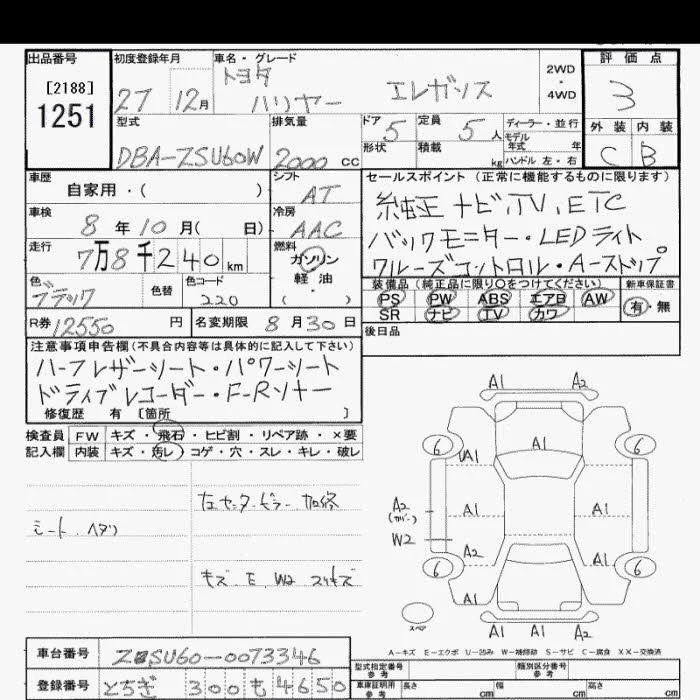 出品番号 初度登録年月 車名・グレード 評価点
[2188]
1251
27 12月 トヨタ ハリヤー エレガンス 2WD・4WD
3
外装 内装
C B
型式 排気量 ドア 定員 ディーラー・並行
DBA-ZSU60W 2000 CC 5 5人 モデル年式 年
形状 積載 kg ハンドル 左・右
車歴 シフト セールスポイント (正常に機能するものに限ります)
自家用・( ) AT
純正 ナビ.TV.ETC
車検 冷房
8年10月( 日) AAC
バックモニター・LEDライト
走行 燃料
7万8千240km ガソリン
クルーズコントロール・A-ストップ
軽油
・( )
色 色替 色コード
ブラック 220
装備品(純正品に限り○をつけてください) 新車保証書
PS PW ABS エアB AW 有・無
SR ナビ TV カワ
R券 12550円 名変期限 8月30日 後日品
注意事項申告欄(不具合内容等は具体的に記入して下さい)
ハーフレザーシート・パワーシート
ドライブレコーダー・F-Rソナー
修復歴 有 〔箇所 〕
検査員 FW キズ・飛石・ヒビ割・リペア跡・×要
記入欄 内装 キズ・汚レ・コゲ・穴・スレ・キレ・破レ
左センターピラー 加修
シート ヘタリ
キズ E W2 スリキズ
A1 A2
6 A1 6
UA1
A2
(カバー)
A1 A1
W2
A2 A1
6 6
A1
スペア
A1 A1 A2
A-キズ E-エクボ U-凹み W-補修跡 S-サビ C-腐食 XX-交換済
車台番号 ZSU60-0073346
登録番号 とちぎ 300 も 4650
型式指定番号 参考 類別区分番号 参考
車庫証明用 参考 長さ cm 幅 cm 高さ cm